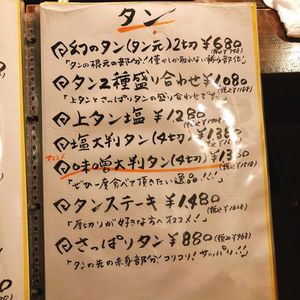 タン
幻のタン(タン元)2切 ¥680
「タンの根元の部分!僅かしか取れない
タン2種盛り合わせ ¥1080
「上タンとさっぱりタンの盛り合わせです」
上タン塩 ¥1280
塩大判タン(4切)
オススメ
味噌大判タン(4切)
「ぜひ一度食べて頂きたい逸品!!!」
タンステーキ ¥1480
「厚切りが好きな方へオススメ!」
さっぱりタン ¥880 (税込¥968)
「タンの先の赤身部分!コリコリ!サッパリ!」